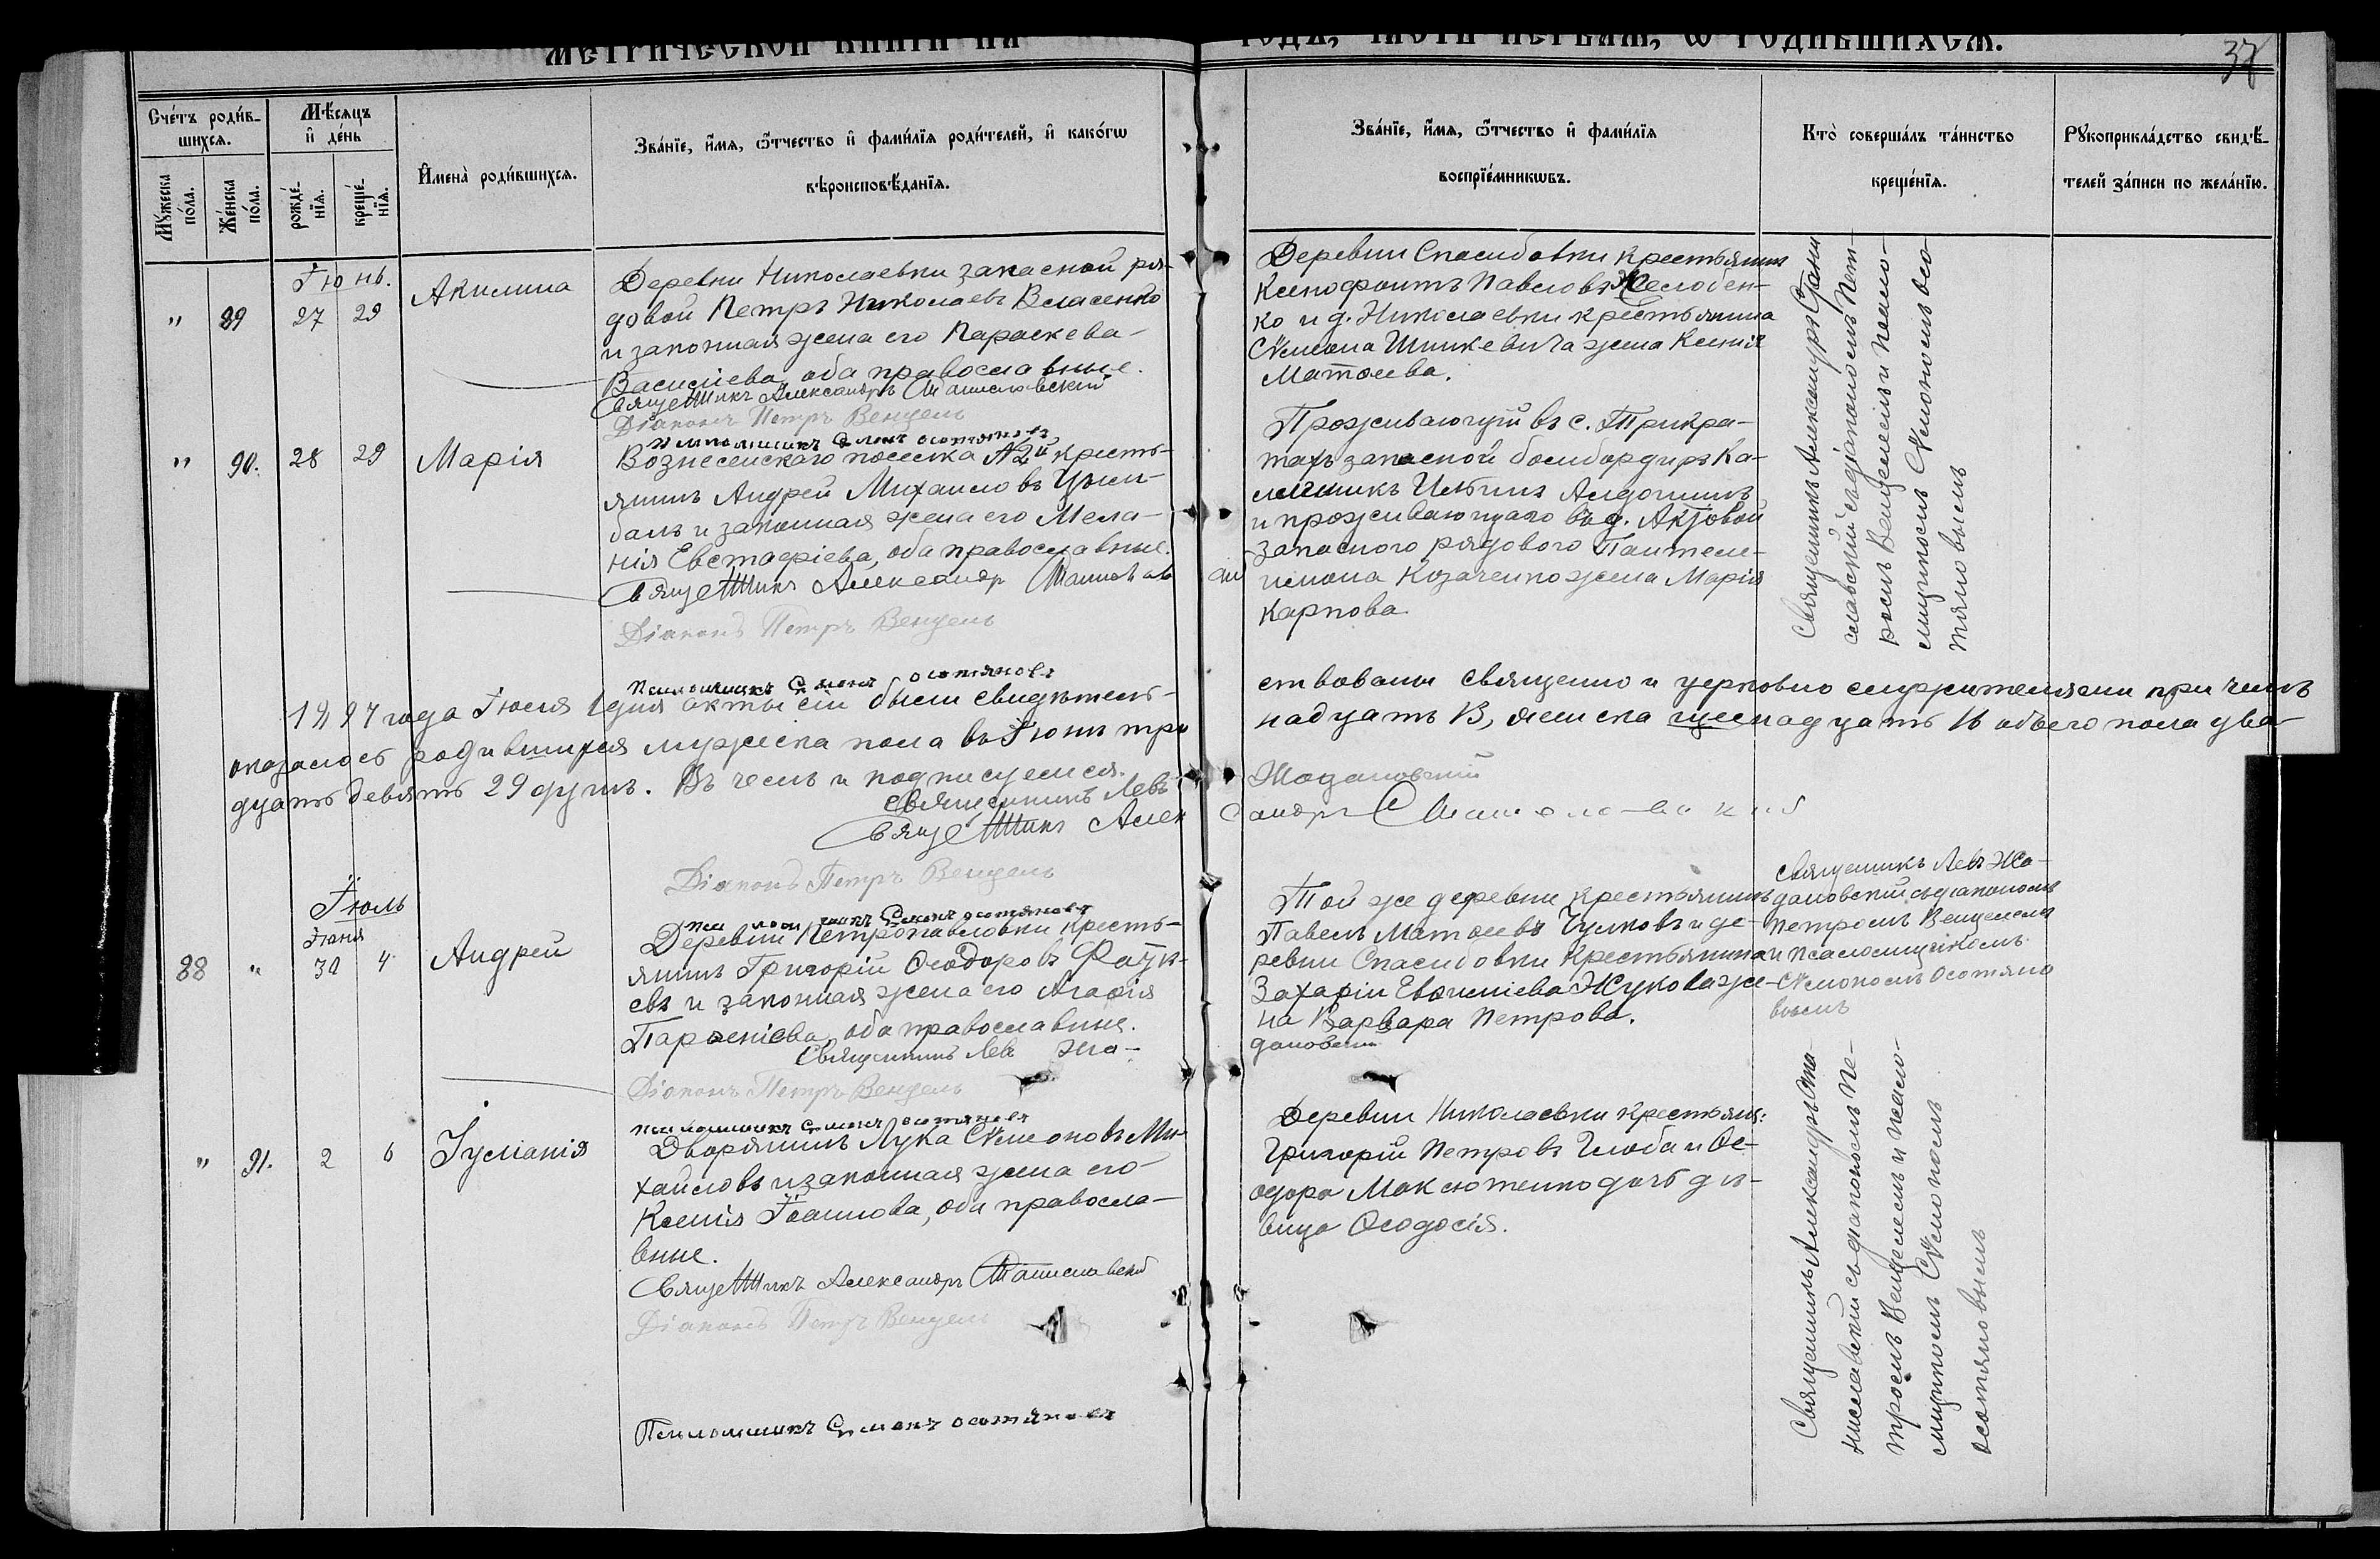 МЕТРИЧЕСКОЙ КНИГИ НА ГОДЪ, ЧАСТЬ ПЕРВАЯ, Ѡ РОДИВШИХСЯ.
37
Счетъ родив-
шихся.
Мѣсяцъ
и день
Мужеска
пола.
Женска
пола.
рожде-
нія.
креще-
нія.
Имена родившихся.
Званіе, имя, ѿчество и фамилія родителей, и какогѡ
вѣроисповѣданія.
Званіе, имя, ѿчество и фамилія
воспріемникѡвъ.
Кто совершалъ таинство
крещенія.
Рукоприкладство свидѣ-
телей записи по желанію.
Іюнь.
" 89 27 29 Акилина
Деревни Николаевки запасной ря-
довой Петръ Николаевъ Власенко
и законная жена его Параскева
Васильева, оба православные.
Священникъ Александръ Станиславскій
Діаконъ Петръ Венцель
Псаломщикъ Симонъ Осотяновъ
Деревни Спасибовки крестьянинъ
Ксенофонтъ Павловъ Желобен-
ко и д. Николаевки крестьянина
Сѵмеона Шинкевича жена Ксенія
Матѳеева.
Священникъ Александръ Стани
славскій съ діакономъ Пет
ромъ Венцелемъ и псало-
мщикомъ Сѵмономъ Осо
тяновымъ
" 90. 28 29 Марія
Вознесенскаго поселка №2й кресть-
янинъ Андрей Михаиловъ Цым-
балъ и законная жена его Мела-
нія Евстафіева, оба православные.
Священникъ Александръ
Діаконъ Петръ Венцель
Псаломщикъ Симонъ Осотяновъ
Проживающій въ с. Трикра-
тахъ запасной бомбардиръ Ка-
и проживающаго въ д. Актовой
запасного рядового Пантеле-
имона Козаченко жена Марія
Карпова.
1897 года Іюля 1 дня акты сіи были свидѣтель-
ствованы священно и церковно служителями при чемъ
оказалось родившихся мужеска пола въ Іюнѣ три
надцать 13, женска шестнадцать 16 обоего пола два-
дцать девять 29 душъ. Въ чемъ и подписуемся.
Священникъ Левъ Жодановскій
Священникъ Александръ Станиславскій
Діаконъ Петръ Венцель
Псаломщикъ Симонъ Осотяновъ
Іюль
Іюня
88 " 30 4 Андрей
Деревни Петропавловки кресть-
янинъ Григорій Ѳеодоровъ
евъ и законная жена его Агафія
Парѳеніева, оба православные.
Священникъ Левъ Жо-
дановскій
Діаконъ Петръ Венцель
Псаломщикъ Симонъ Осотяновъ
Той же деревни крестьянинъ
Павелъ Матѳеевъ Чулковъ и де-
ревни Спасибовки крестьянина
Захаріи Евѳиміева Жукова же-
на Варвара Петрова.
Священникъ Левъ Жо-
дановскій съ діакономъ
Петромъ Венцелемъ
и псаломщикомъ
Сѵмономъ Осотяно
вымъ
" 91. 2 6 Іуліанія
Дворянинъ Лука Сѵмеоновъ Ми-
хайловъ и законная жена его
Ксенія Іоаннова, оба правосла-
вные.
Священникъ Александръ Станиславскій
Діаконъ Петръ Венцель
Псаломщикъ Симонъ Осотяновъ
Деревни Николаевки крестьян:
Григорій Петровъ Глоба и Ѳе-
одора Максютенко дочь дѣ-
вица Ѳеодосія.
Священникъ Александръ Ста-
ниславскій съ діакономъ Пе-
тромъ Венцелемъ и псало-
мщикомъ Сѵмономъ
Осотяновымъ